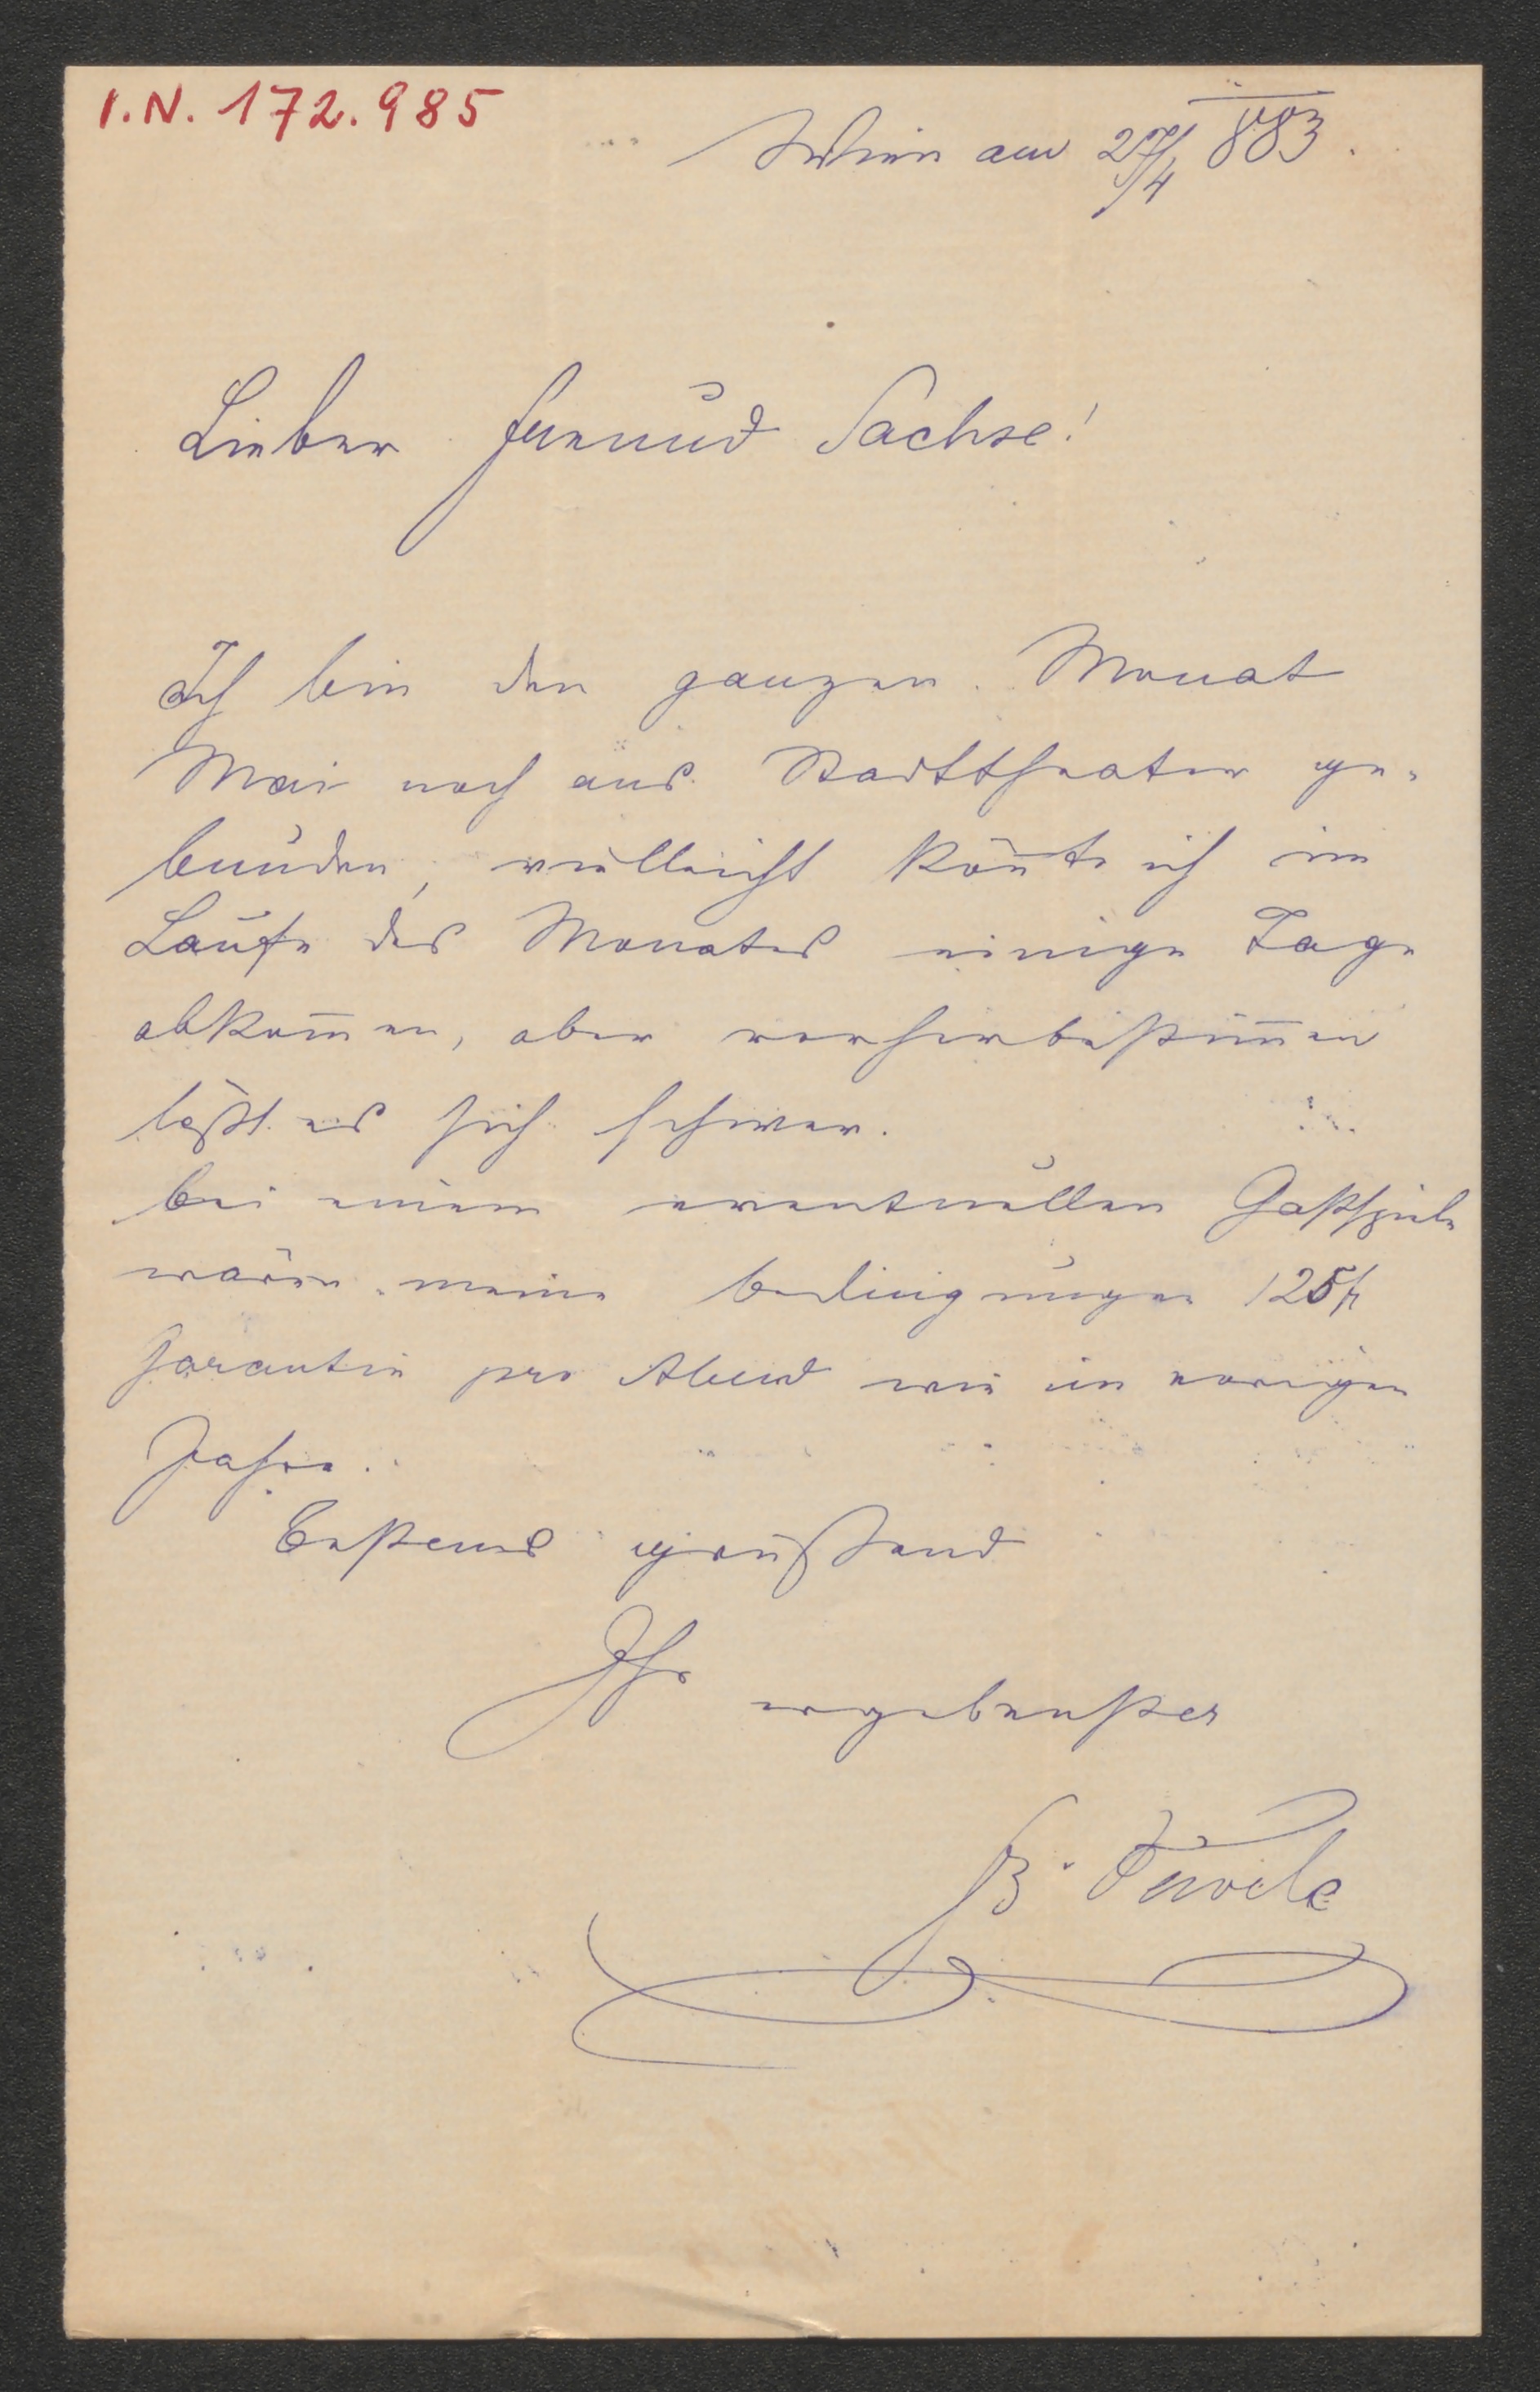 I.N. 172.985
Wien am 27/4 883.
Lieber Freund Sachse!
Ich bin den ganzen Monat
Mai noch ans Stadttheater ge-
bunden, vielleicht kön̅te ich im
Laufe des Monates einige Tage
abkom̅en, aber vorherbestim̅en
läßt es sich schwer.
Bei einem eventuellen Gastspiele
wären meine Bedingungen 125 fl
Garantie pro Abend wie im vorigen
Jahre.
Bestens grüßend
Ihr ergebenster